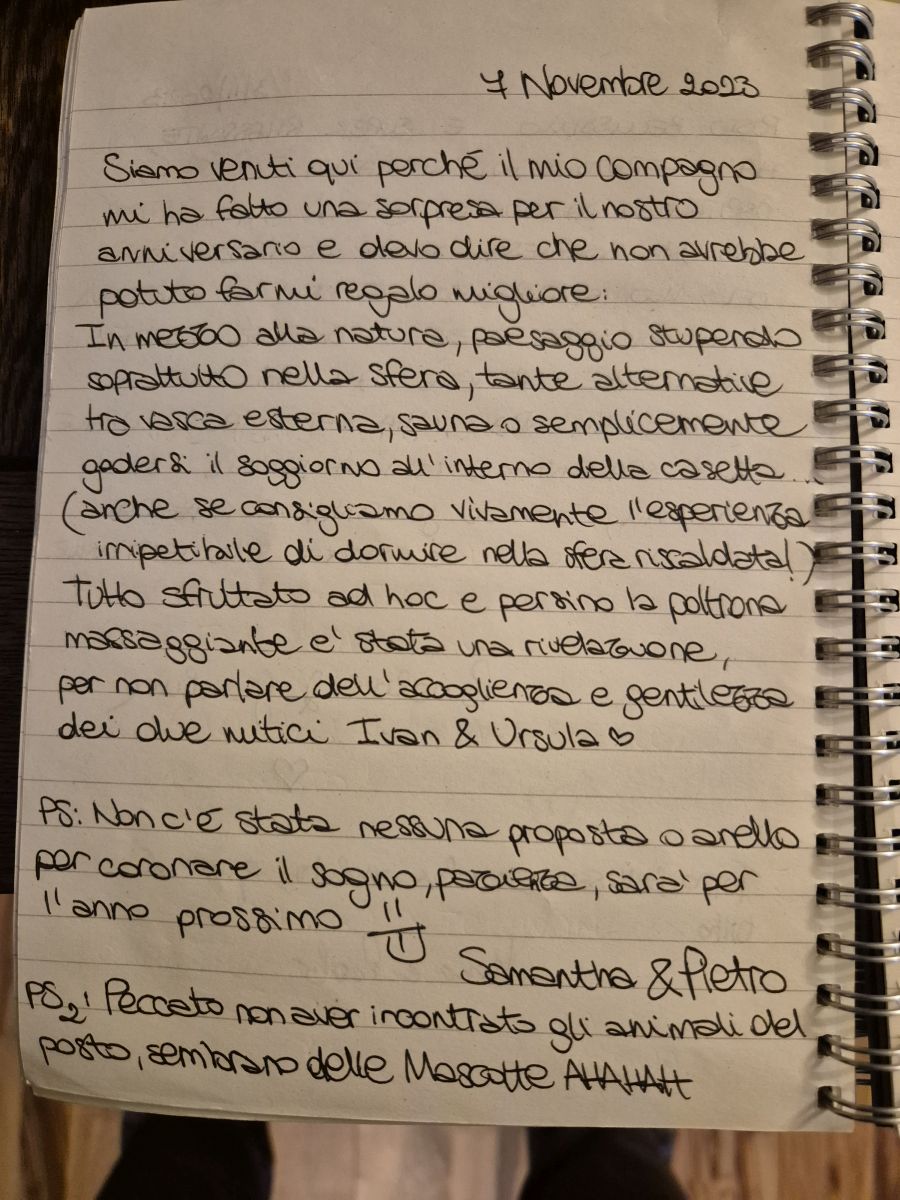 7 Novembre 2023
Siamo venuti qui perché il mio compagno
mi ha fatto una sorpresa per il nostro
anniversario e devo dire che non avrebbe
potuto farmi regalo migliore:
In mezzo alla natura, paesaggio stupendo
soprattutto nella sfera, tante alternative
tra vasca esterna, sauna o semplicemente
godersi il soggiorno all'interno della casetta...
(anche se consigliamo vivamente l'esperienza
irripetibile di dormire nella sfera riscaldata!)
Tutto sfruttato ad hoc e persino la poltrona
massaggiante e' stata una rivelazione,
per non parlare dell'accoglienza e gentilezza
dei due mitici Ivan & Ursula ♡
PS: Non c'è stata nessuna proposta o anello
per coronare il sogno, pazienza, sara' per
l'anno prossimo
Samantha & Pietro
PS2: Peccato non aver incontrato gli animali del
posto, sembrano delle Mascotte AHAHAH